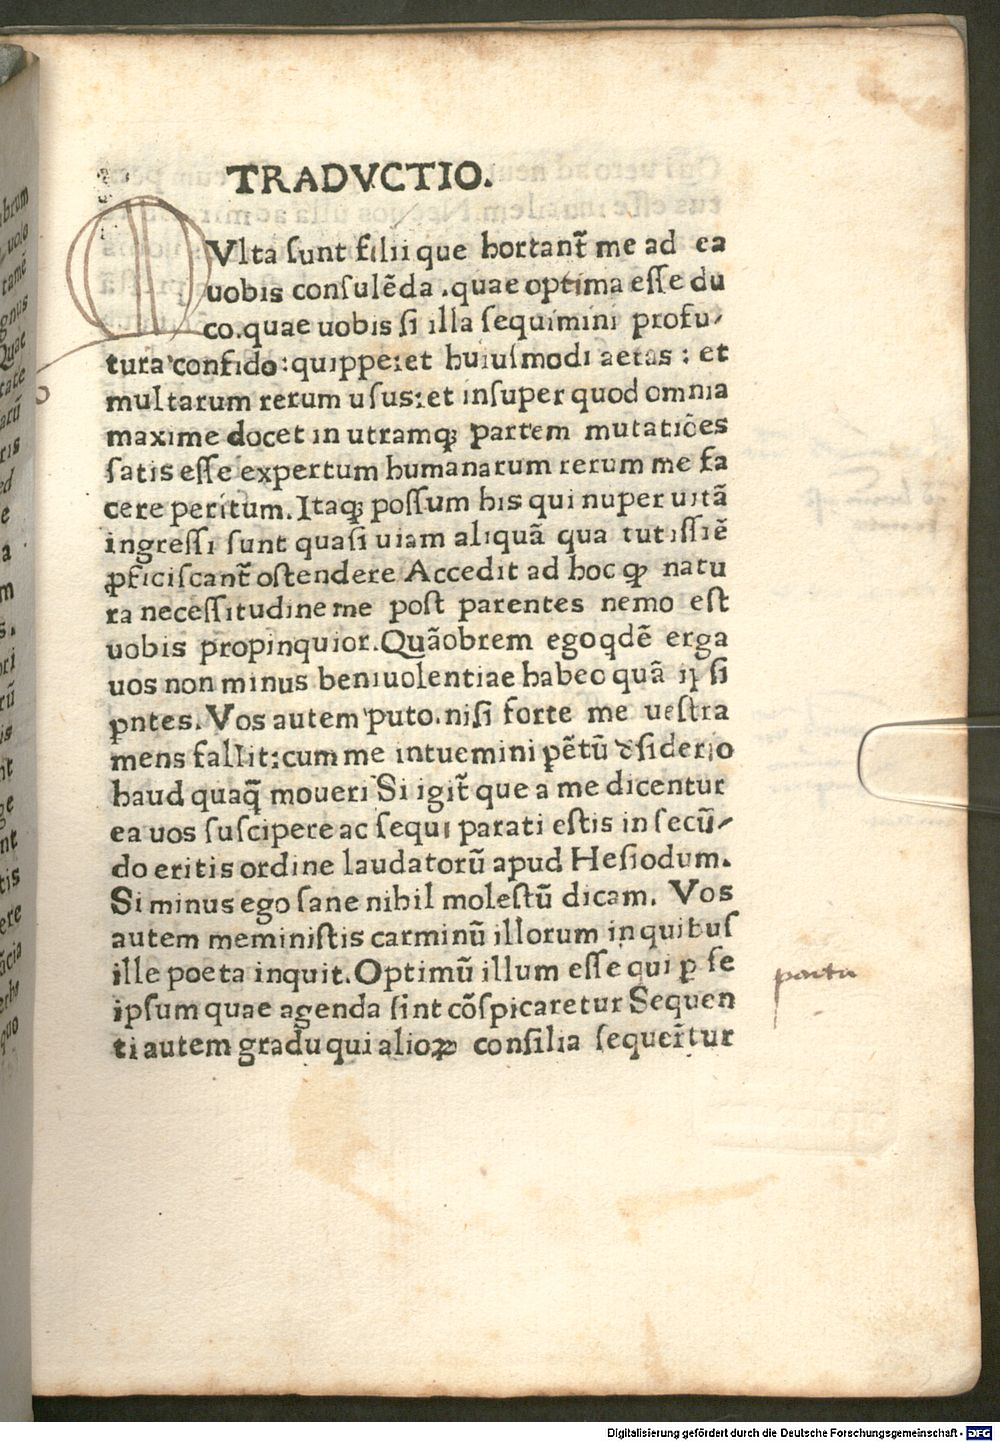 TRADVCTIO.
MVlta sunt filii que hortant̃ me ad ea
uobis consulẽda .quae optima esse du
co.quae uobis si illa sequimini profu-
tura confido:quippe:et huiusmodi aetas : et
multarum rerum usus:et insuper quod omnia
maxime docet in utramqꝫ partem mutatiões
satis esse expertum humanarum rerum me fa
cere peritum. Itaqꝫ possum his qui nuper uitã
ingressi sunt quasi uiam aliquã qua tutissiẽ
ꝓficiscant̃ ostendere Accedit ad hoc ꝙ natu
ra necessitudine me post parentes nemo est
uobis propinquior.Quãobrem ego qdẽ erga
uos non minus beniuolentiae habeo quã ıp̱ si
pñtes. Vos autem puto.nisi forte me uestra
mens fallit:cum me intuemini pẽtũ dsiderio
haud quaq̃ moueri Si igit̃ que a me dicentur
ea uos suscipere ac sequi parati estis in secũ-
do eritis ordine laudatorũ apud Hesiodum.
Si minus ego sane nihil molestũ dicam. Vos
autem meministis carminũ illorum in quibus
ille poeta inquit. Optimũ illum esse qui ꝑ se
ipsum quae agenda sint cõspicaretur Sequen
ti autem gradu qui alioꝝ consilia sequer̃tur
Digitalisierung gefördert durch die Deutsche Forschungsgemeinschaft - DFG